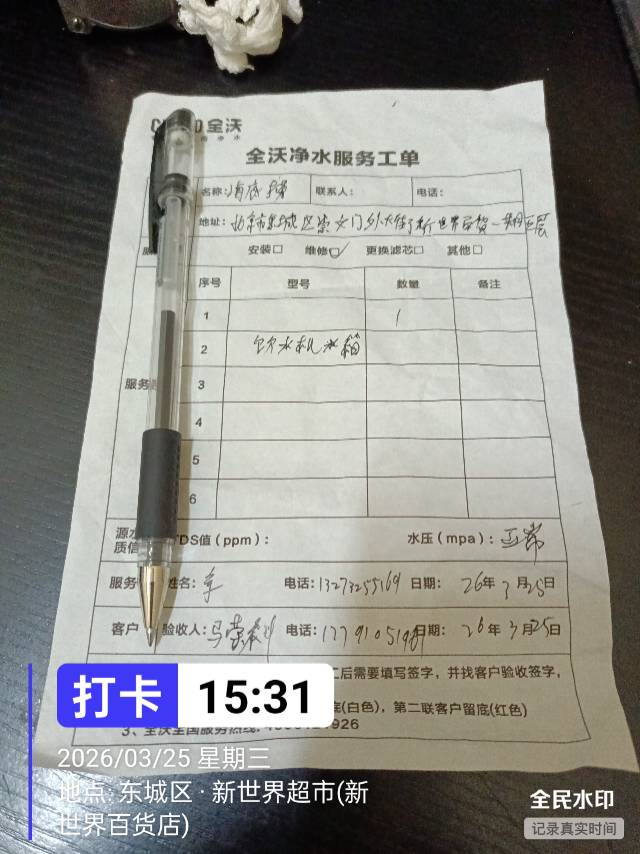 全沃
全沃净水服务工单
名称:海底捞 联系人: 电话:
地址: 北京市东城区崇文门外大街新世界百货一期五层
安装□ 维修☑ 更换滤芯□ 其他□
序号 型号 数量 备注
1 1
2 饮水机水箱
服务
3
4
5
6
源水
质信 TDS值(ppm): 水压(mpa): 正常
服务 姓名: 电话:13273255169 日期: 26年3月25日
客户 验收人: 马 电话: 日期: 26年3月25日
工后需要填写签字,并找客户验收签字,
底(白色),第二联客户留底(红色)
3、全沃全国服务热线:
打卡 15:31
2026/03/25 星期三
地点: 东城区 · 新世界超市(新
世界百货店)
全民水印
记录真实时间